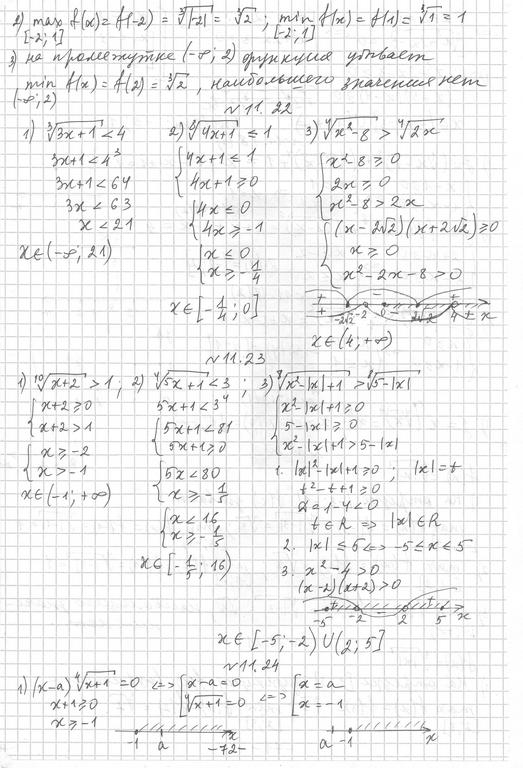 2) max f(x) = f(-2) = ∛|-2| = ∛2 ; min f(x) = f(1) = ∛1 = 1
[-2; 1] [-2; 1]
3) на промежутке (-∞; 2) функция убывает
min f(x) = f(2) = ∛2, наибольшего значения нет
(-∞; 2)
№ 11.22
1) ∛(3x+1) < 4
3x+1 < 4³
3x+1 < 64
3x < 63
x < 21
x ∈ (-∞; 21)
2) ⁸√(4x+1) ≤ 1
{ 4x+1 ≤ 1
4x+1 ≥ 0
{ 4x ≤ 0
4x ≥ -1
{ x ≤ 0
x ≥ -1/4
x ∈ [-1/4; 0]
3) ⁴√(x²-8) > ⁴√(2x)
{ x²-8 ≥ 0
2x ≥ 0
x²-8 > 2x
{ (x-2√2)(x+2√2) ≥ 0
x ≥ 0
x²-2x-8 > 0
+ - +
+ - +
-2√2 -2 0 2√2 4 x
x ∈ (4; +∞)
№ 11.23
1) ¹⁰√(x+2) > 1 ;
{ x+2 ≥ 0
x+2 > 1
{ x ≥ -2
x > -1
x ∈ (-1; +∞)
2) ⁴√(5x+1) < 3 ;
5x+1 < 3⁴
{ 5x+1 < 81
5x+1 ≥ 0
{ 5x < 80
x ≥ -1/5
{ x < 16
x ≥ -1/5
x ∈ [-1/5; 16)
3) ⁸√(x²-|x|+1) > ⁸√(5-|x|)
{ x²-|x|+1 ≥ 0
5-|x| ≥ 0
x²-|x|+1 > 5-|x|
1. |x|²-|x|+1 ≥ 0 ; |x| = t
t²-t+1 ≥ 0
D = 1-4 < 0
t ∈ R ⇒ |x| ∈ R
2. |x| ≤ 5 <=> -5 ≤ x ≤ 5
3. x²-4 > 0
(x-2)(x+2) > 0
+ - +
-5 -2 2 5 x
x ∈ [-5; -2) ∪ (2; 5]
№ 11.24
1) (x-a) ⁴√(x+1) = 0 <=> [ x-a = 0 <=> [ x = a
x+1 ≥ 0 ⁴√(x+1) = 0 x = -1
x ≥ -1
-1 a x
a -1 x
-72-